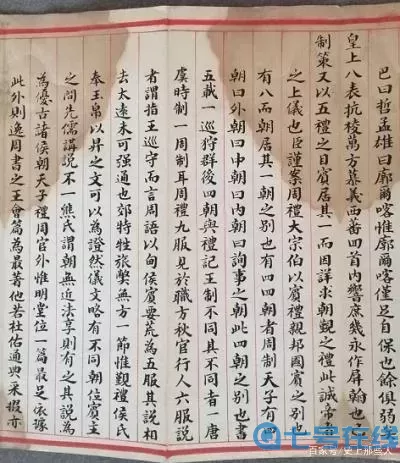 巴曰哲孟雄曰廓爾喀惟廓爾喀僅足自保也餘俱弱
皇上八表抗稜萬方慕義西蕃四首內響庶幾永作屏翰也
制策又以五禮之目賓居其一而因詳求朝覲之禮此誠帝者
之上儀也臣謹案周禮大宗伯以賓禮親邦國賓之別也
有八而朝居其一朝之別也有四四朝者周制天子有四
朝曰外朝曰中朝曰內朝曰詢事之朝此四朝之別也
五載一巡狩群后四朝與禮記王制不同其不同者一唐
虞時制一周制耳周禮九服見於職方秋官行人六服說
者謂指王巡守而言周語以甸侯賓要荒為五服其說相
去太遠未可強通也郊特牲張幣無方一節惟覲禮侯氏
奉玉帛以昇之文可以為證然儀文略有不同朝位賓主
之間先儒講說不一熊氏謂朝無迎法享則有之其說為
為優古諸侯朝天子禮周官外惟明堂位一篇最足依據
此外則逸周書之王會篇為最著他若杜佑通典采掇亦
七宝在线
百家号/史上那些人